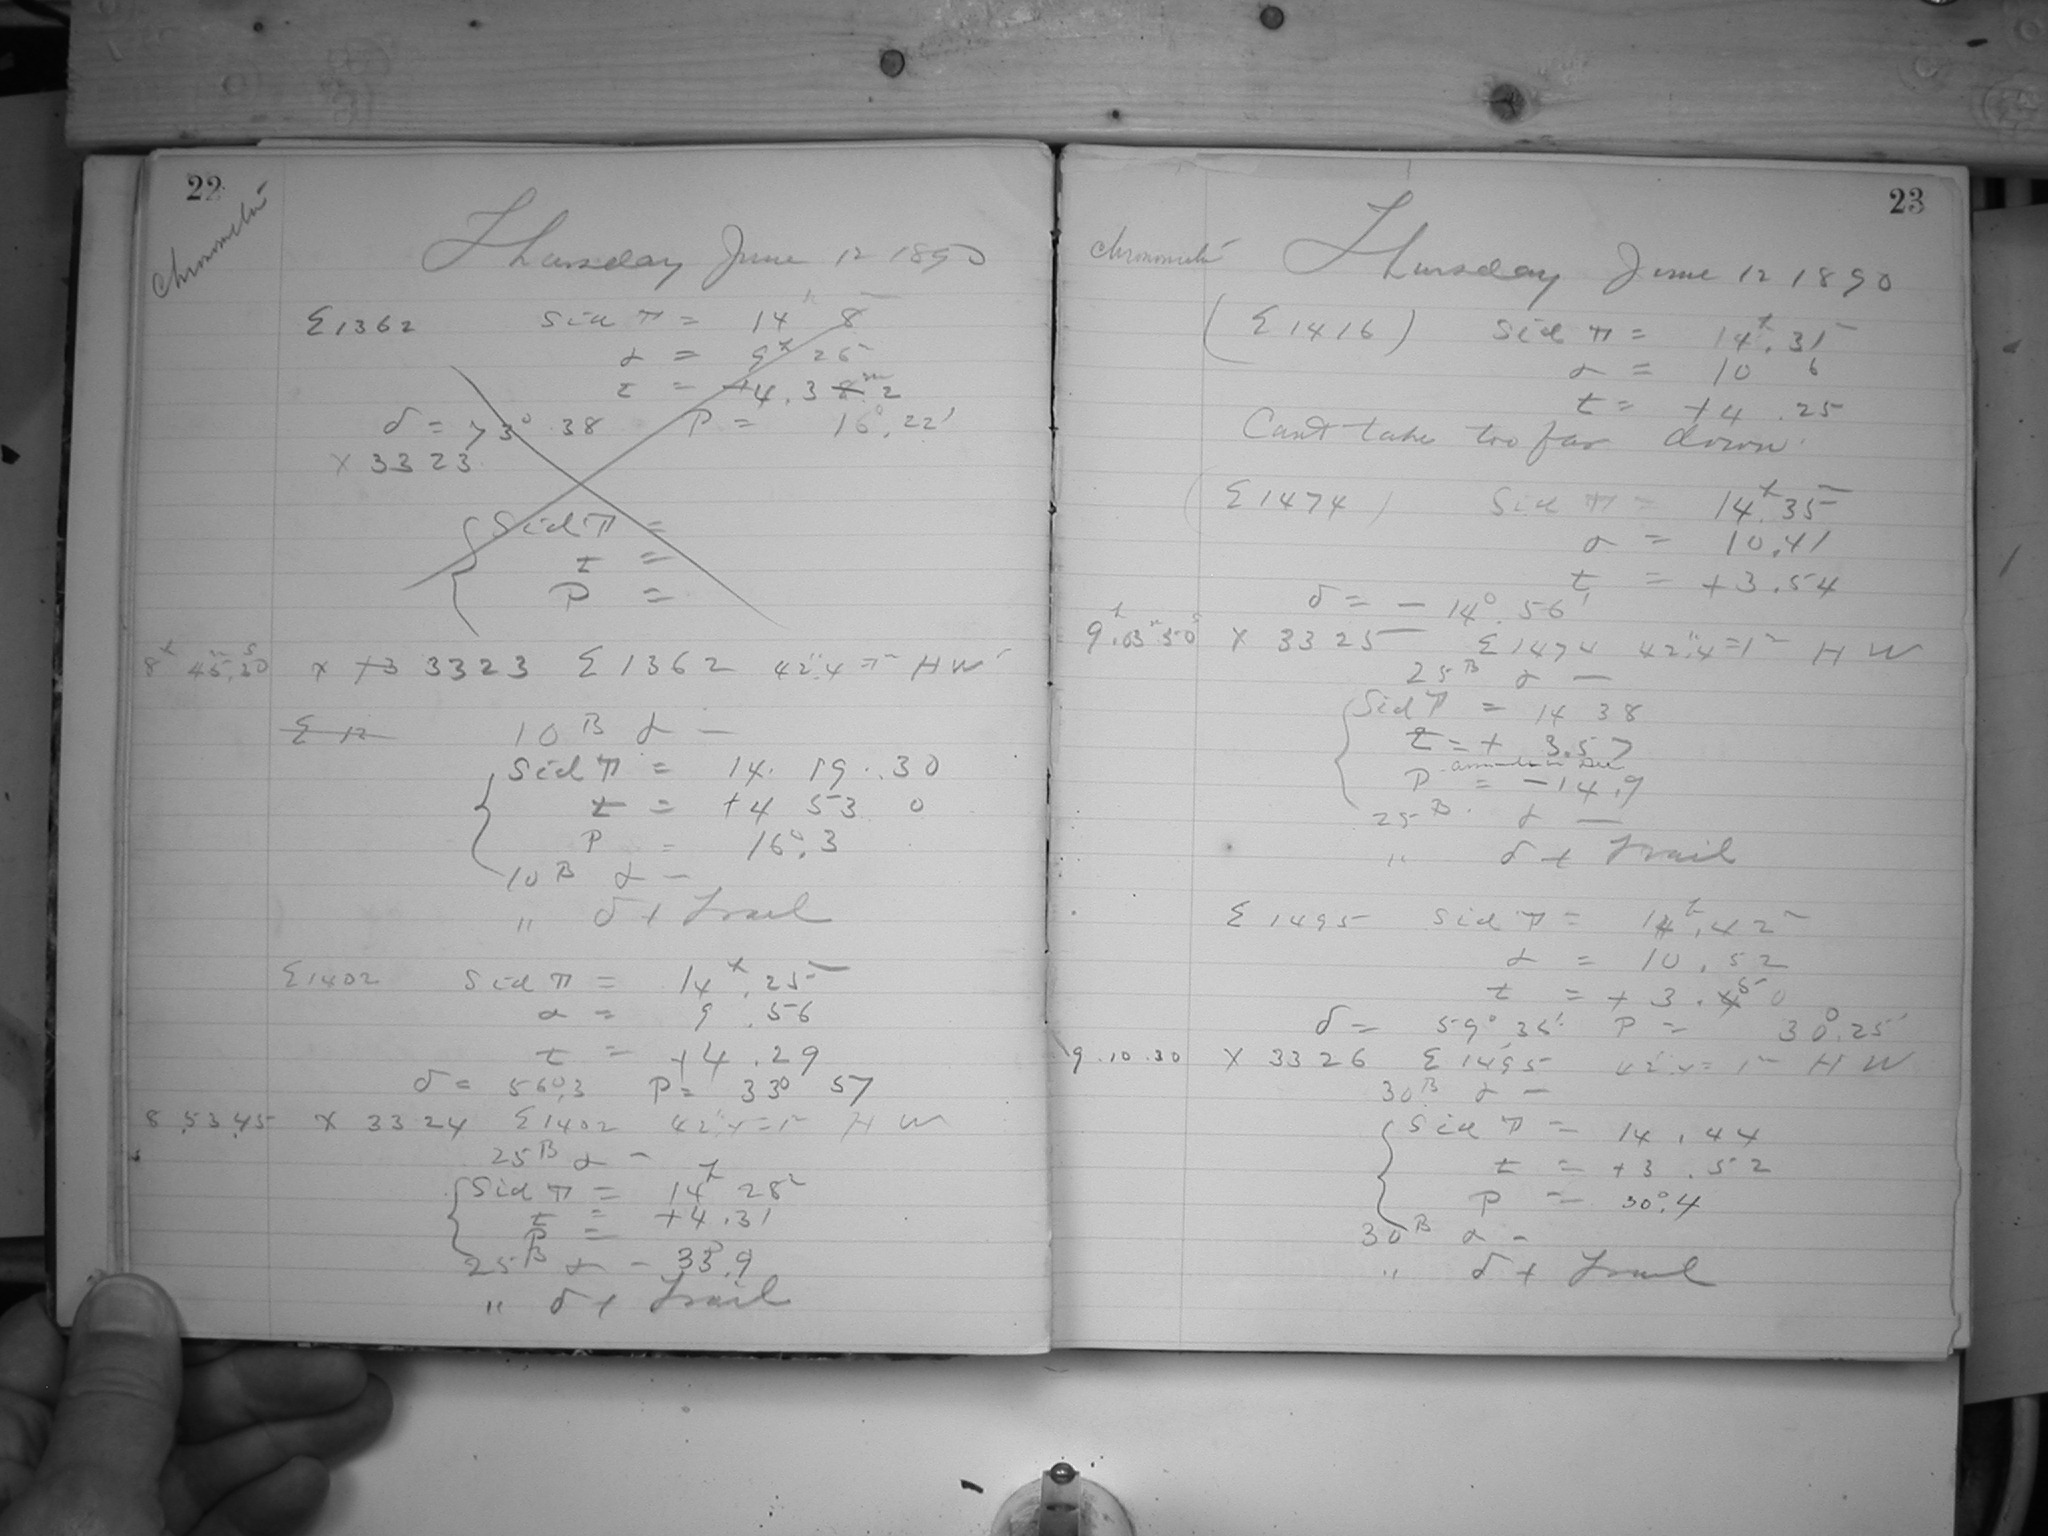 22
Chronometer
Thursday June 12 1890
Σ1362 Sid T = 14h 8
α = 9h 25
t = +4.38m.2
δ = 73° 38 P = 16°.22'
× 3323
Sid T =
t =
P =
8h 45m.30s × 3323 Σ1362 42".4 = 1r HW
Σ 12
10B α —
Sid T = 14. 19. 30
t = +4 53 0
P = 16°.3
10B α —
" δ + Trail
Σ1402 Sid T = 14h.25
α = 9.56
t = +4.29
δ = 56°.3 P = 33° 57
8.53.45 × 3324 Σ1402 42".4 = 1r HW
25B α —
Sid T = 14h 28
t = +4.31
P =
25B α — 33°.9
" δ + Trail
23
Chronometer
Thursday June 12 1890
(Σ1416) Sid T = 14h.31
α = 10 6
t = +4.25
Can't take too far down.
(Σ1474) Sid T = 14h.35
α = 10.41
t = +3.54
δ = — 14°.56'
9h.03m.50s × 3325 Σ1474 42".4 = 1r HW
25B α —
Sid T = 14 38
t = + 3.57
P = -14.9
25B α —
" δ + Trail
Σ1495 Sid T = 14h.42
α = 10.52
t = +3.50
δ = 59° 35' P = 30°.25'
9.10.30 × 3326 Σ1495 42".4 = 1r HW
30B α —
Sid T = 14.44
t = +3.52
P = 30°.4
30B α —
" δ + Trail